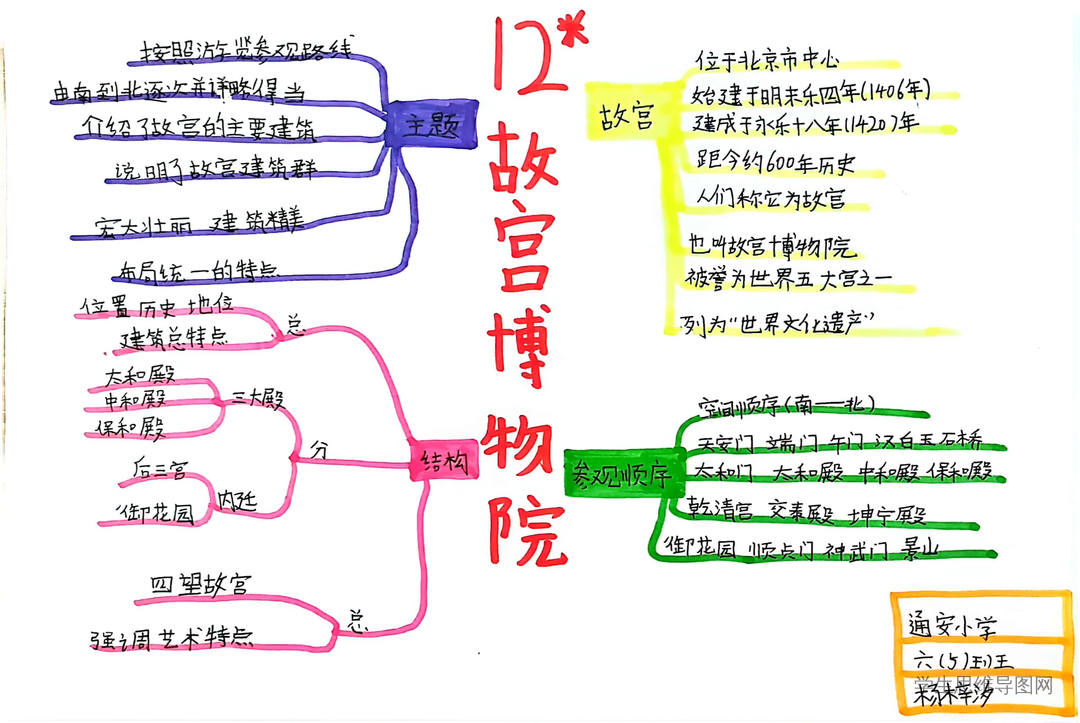 12*
故宫博物院
主题
按照游览参观路线
由南到北逐次并详略得当
介绍了故宫的主要建筑
说明了故宫建筑群
宏大壮丽 建筑精美
布局统一的特点
故宫
位于北京市中心
始建于明未乐四年(1406年)
建成于永乐十八年(1420)年
距今约600年历史
人们称它为故宫
也叫故宫博物院
被誉为世界五大宫之一
列为“世界文化遗产”
结构
总
位置 历史 地位
建筑总特点
分
三大殿
太和殿
中和殿
保和殿
内廷
后三宫
御花园
总
四望故宫
强调艺术特点
参观顺序
空间顺序(南——北)
天安门 端门 午门 汉白玉石桥
太和门 太和殿 中和殿 保和殿
乾清宫 交泰殿 坤宁殿
御花园 顺贞门 神武门 景山
通安小学
六(5)班
学生思维导图网